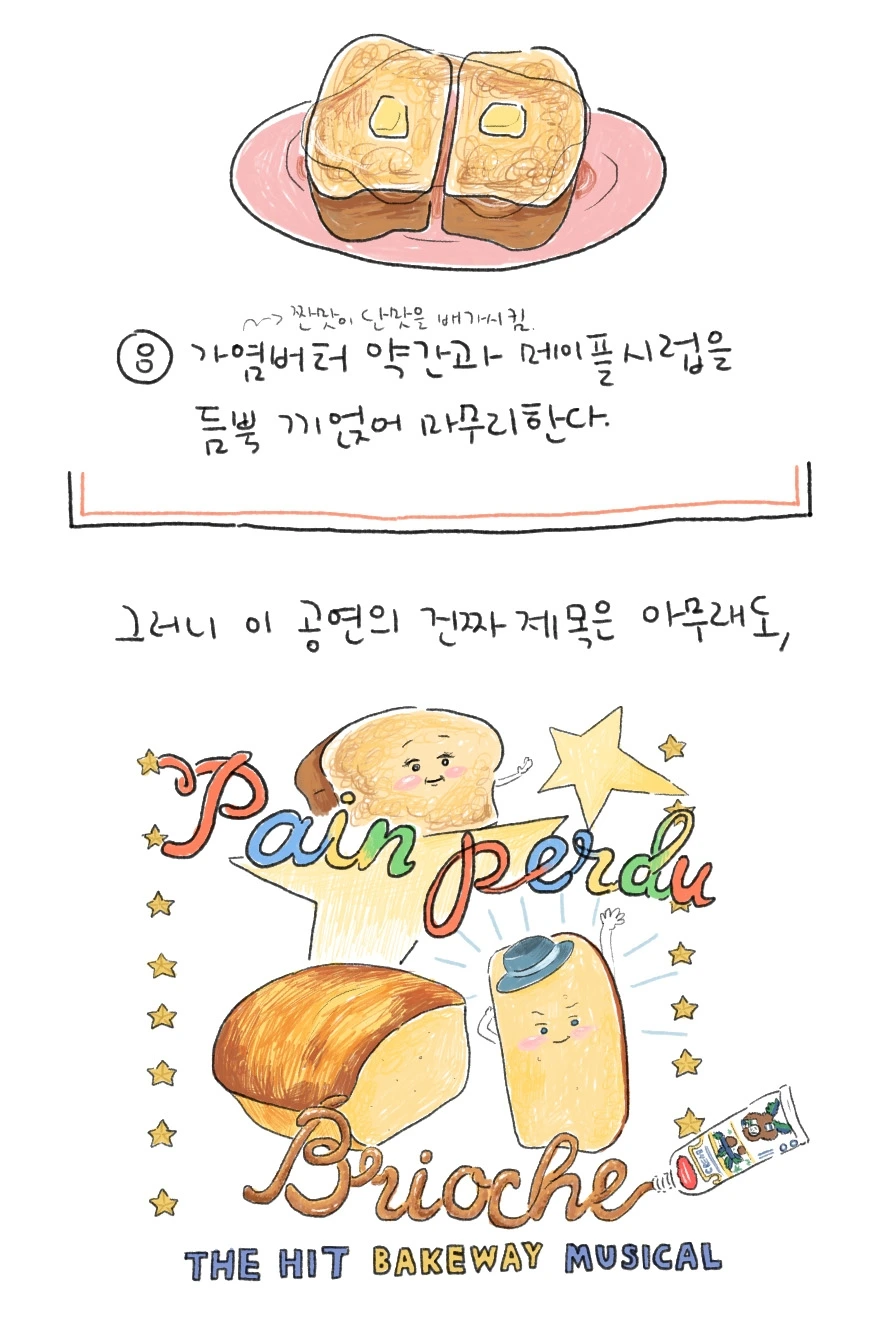 → 짠맛이 단맛을 배가시킴.
⑧ 가염버터 약간과 메이플시럽을
듬뿍 끼얹어 마무리한다.
그러니 이 공연의 진짜 제목은 아무래도,
Pain perdu
Brioche
THE HIT BAKEWAY MUSICAL